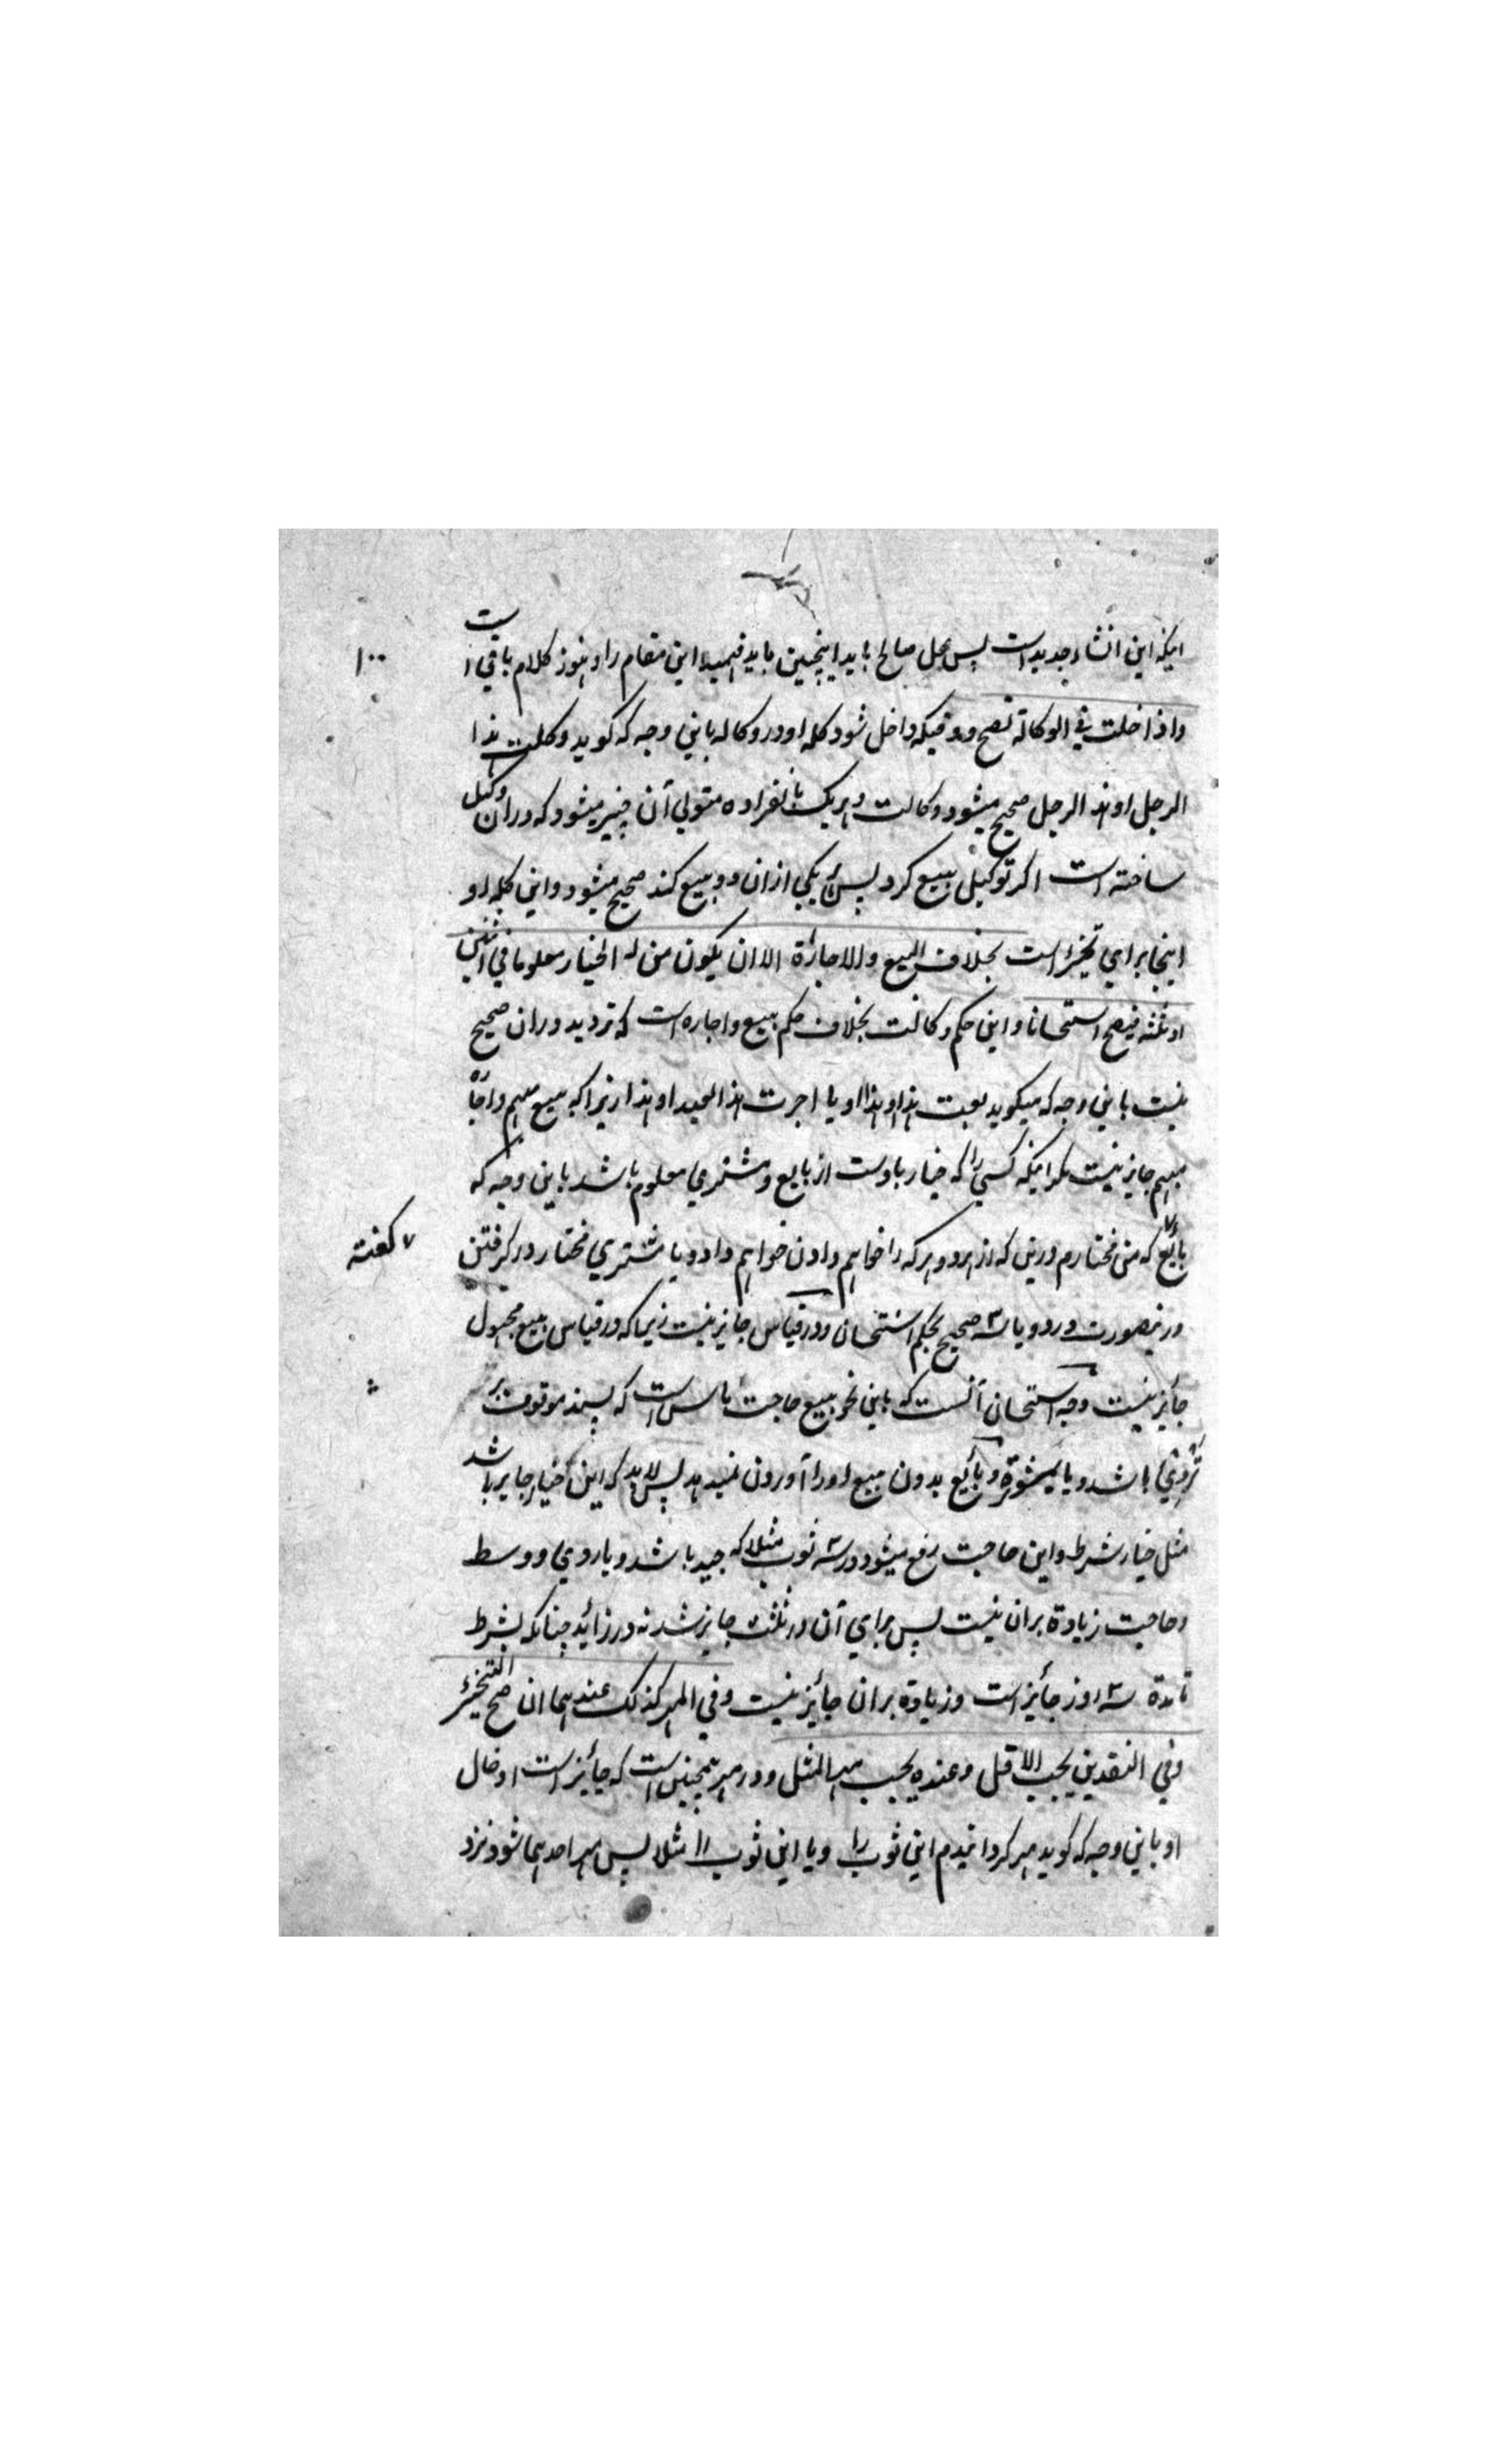 اینکه این انشاء جدید است پس محل صالح باید اینچنین باید فهمید این مقام را و هنوز کلام باقی است
۱۰۰
واذا دخلت في الوكالة تصح و وقتیکه داخل شود کلمه او در وکاله باین وجه که گوید وکلت هذا
الرجل او هذا الرجل صحیح میشود وکالت و هر یک بانفراده متولی آن چیز میشود که دران وکیل
ساخته است اگر توکیل ببیع کرد پس یکی ازان دو بیع کند صحیح میشود و این کلمه او
اینجا برای تخییر است بخلاف البیع والاجارة الا ان یکون من له الخیار معلوما في اثنین
او ثلثه فیصح استحسانا و این حکم وکالت بخلاف حکم بیع و اجاره است که تردید دران صحیح
نیست باین وجه که میگوید بعت هذا او هذا و یا اجرت هذا العبد او هذا زیرا که بیع مبهم و اجارة
مبهم جایز نیست مگر اینکه کسی را که خیار باوست از بایع و مشتری معلوم باشد باین وجه که
بائع که من مختارم درین که از هر دو هر که را خواهم دادن خواهم داد و یا مشتری مختار در گرفتن
۷ گفته
درینصورت در دو یا سه صحیح بحکم استحسان و در قیاس جایز نیست زیرا که در قیاس بیع مجهول
جائز نیست وجه استحسان آنست که باین نحو بیع حاجت ناس است که پسند موقوف بر
باشد و یا بمشوره و بائع بدون بیع او را آوردن نمیدهد پس لابد که این خیار جایز باشد
مثل خیار شرط و این حاجت رفع میشود در سه ثوب مثلا که جید باشد و یا ردي و وسط
و حاجت زیادة بران نیست پس برای آن در ثلث جایز شد نه در زائد چنانکه شرط
تا مدة سه روز جائز است و زیادة بران جائز نیست وفي المهر كذلك عندهما ان صح التخییر
وفي النقدین یجب الاقل وعنده یجب مهر المثل و در مهر همچنین است که جائز است ادخال
او باین وجه که گوید مهر گردانیدم این ثوب را و یا این ثوب را مثلا پس مهر احدهما شود نزد